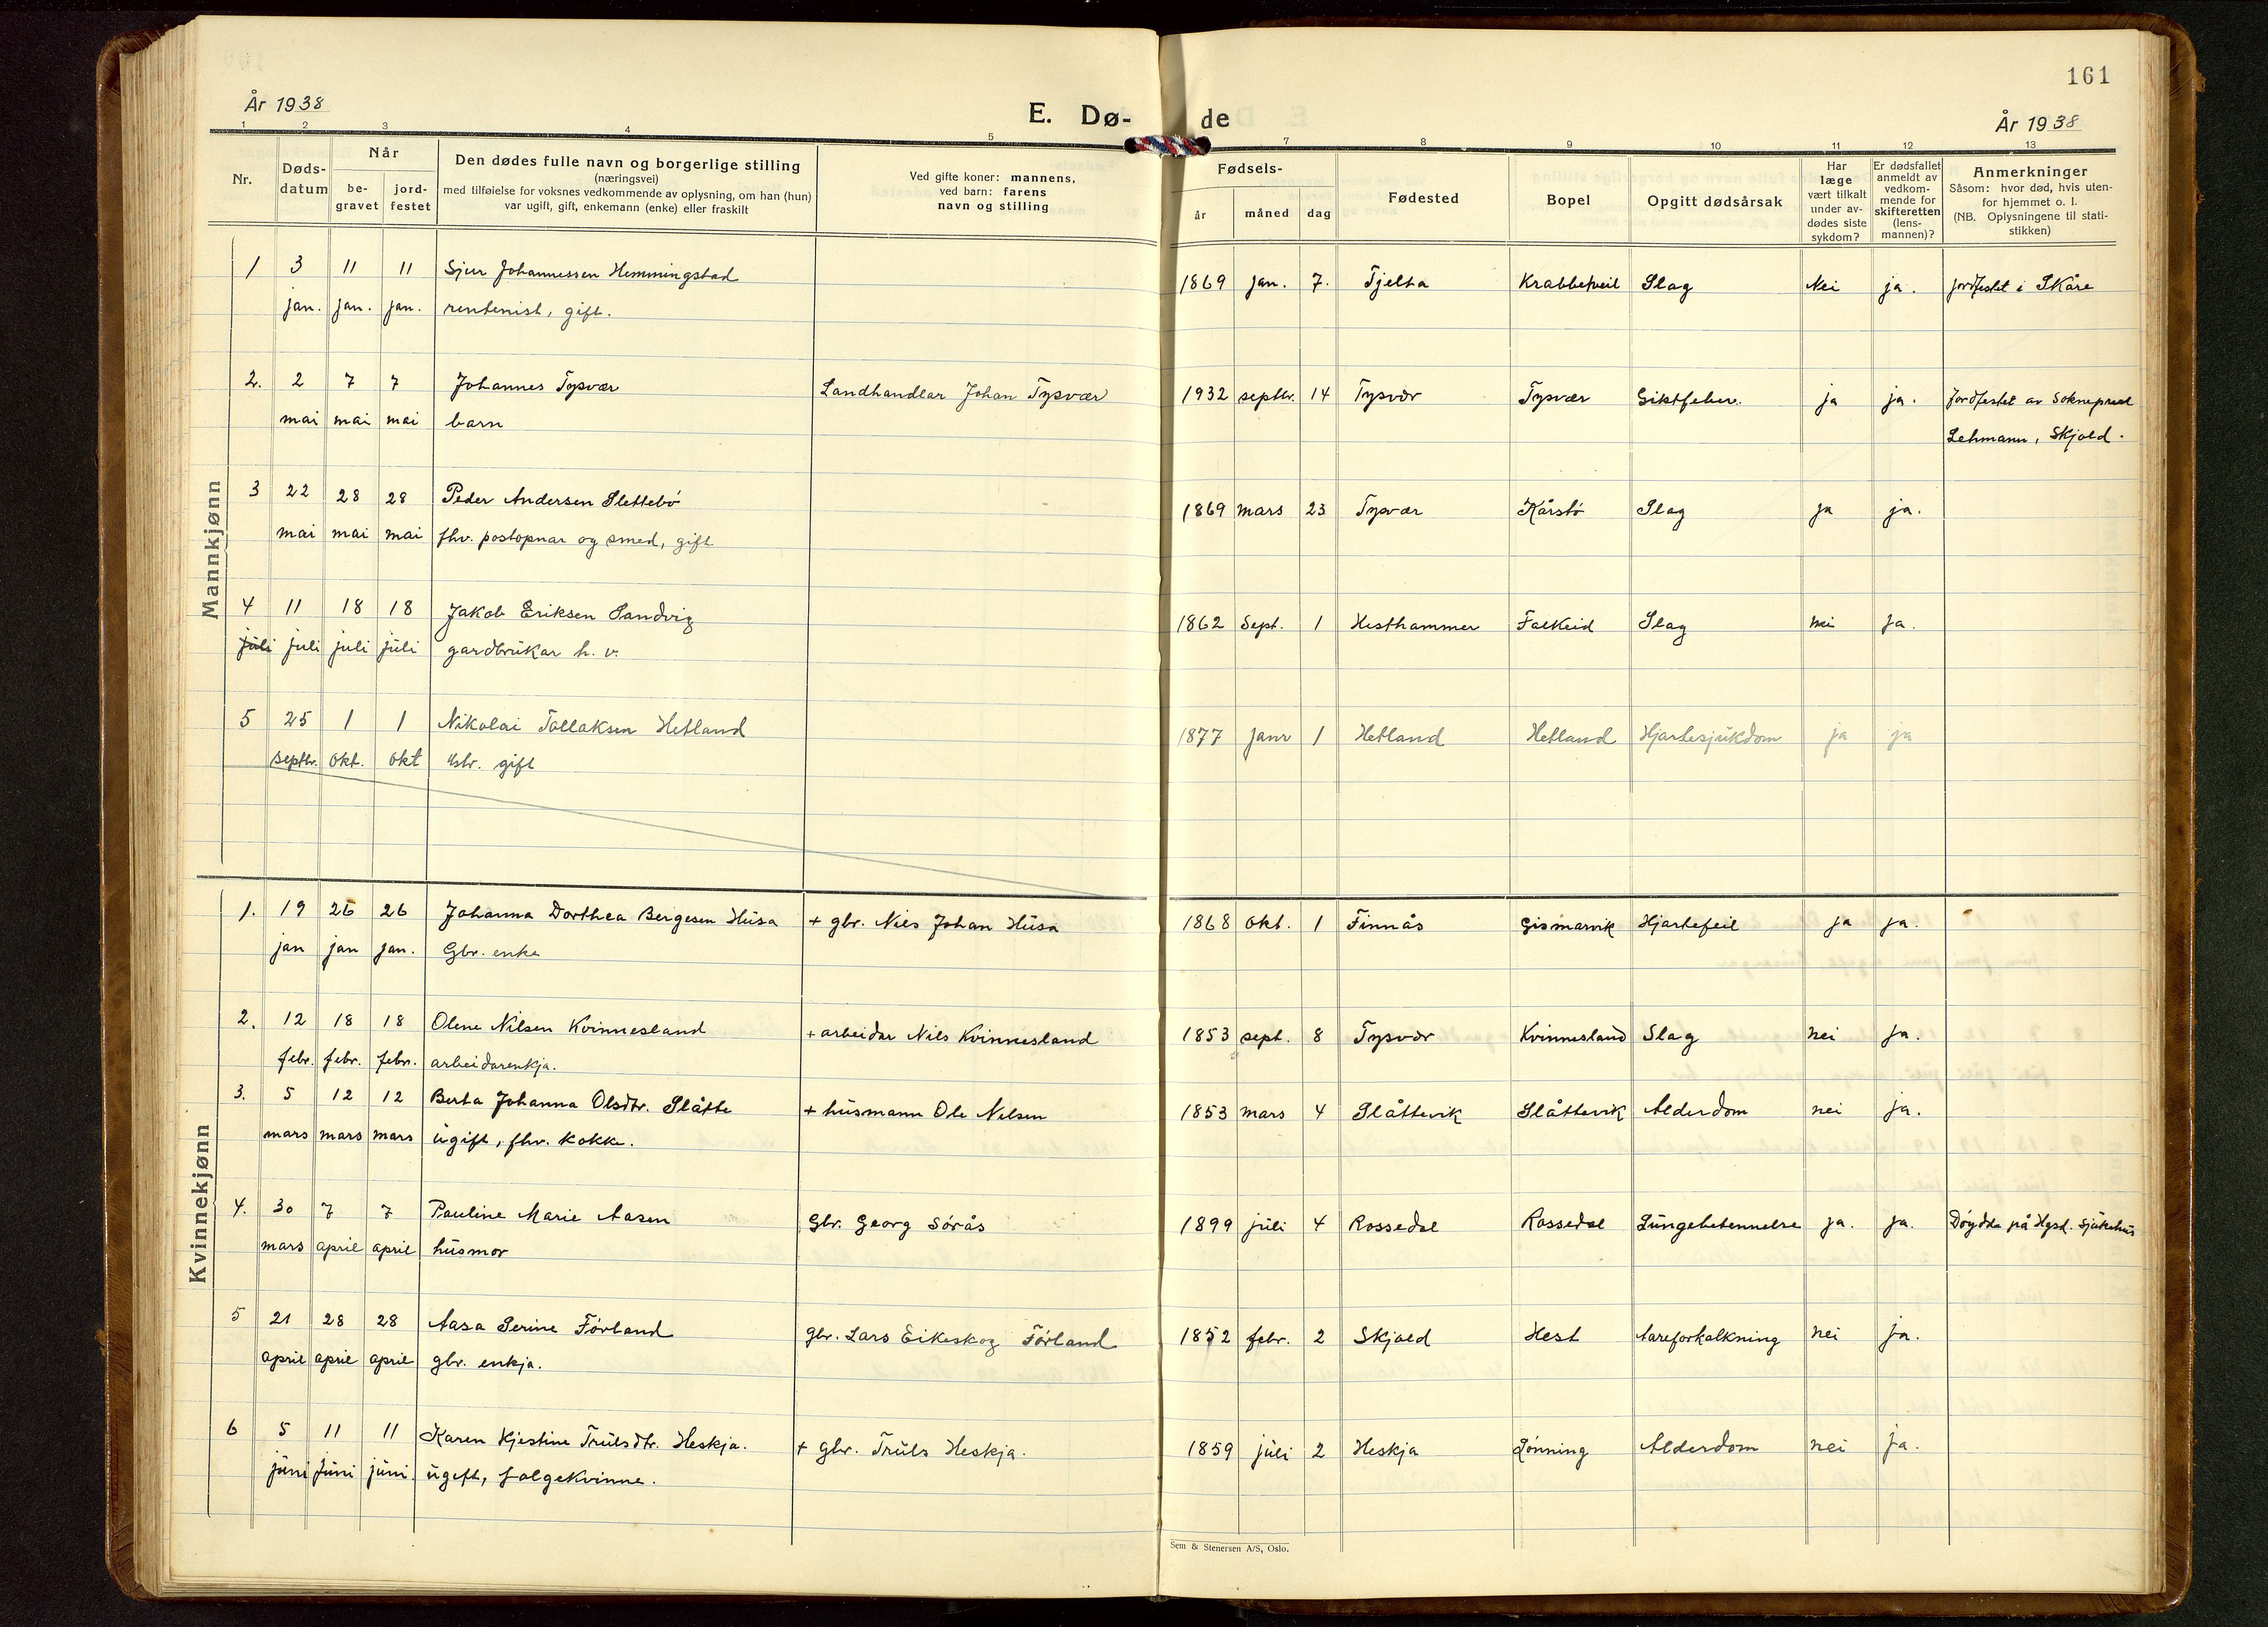 161
År 1938
E. Dø-
de
År 1938
1 2 3 4 5 7 8 9 10 11 12 13
Nr.
Døds-
datum
Når
be-
gravet
jord-
festet
Den dødes fulle navn og borgerlige stilling
(næringsvei)
med tilføielse for voksnes vedkommende av oplysning, om han (hun)
var ugift, gift, enkemann (enke) eller fraskilt
Ved gifte koner: mannens,
ved barn: farens
navn og stilling
Fødsels-
år måned dag
Fødested
Bopel
Opgitt dødsårsak
Har
læge
vært tilkalt
under av-
dødes siste
sykdom?
Er dødsfallet
anmeldt av
vedkom-
mende for
skifteretten
(lens-
mannen)?
Anmerkninger
Såsom: hvor død, hvis uten-
for hjemmet o. l.
(NB. Oplysningene til stati-
stikken)
Mannkjønn
1 3 11 11 Sjur Johannessen Hemmingstad 1869 jan. 7. Tjelta Krabbetveit Slag Nei ja. jordfestet i Skåre
jan. jan. jan. rentenist, gift.
2. 2 7 7 Johannes Tysvær Landhandlar Johan Tysvær 1932 septbr. 14 Tysvær Tysvær Giktfeber. ja ja. Jordfestet av Sokneprest
mai mai mai barn Lehmann, Skjold.
3 22 28 28 Peder Andersen Slettebö 1869 mars 23 Tysvær Kårstö Slag ja ja.
mai mai mai fhv. postopnar og smed, gift
4 11 18 18 Jakob Eriksen Sandvig 1862 Sept. 1 Hesthammer Falkeid Slag nei ja.
juli juli juli juli gardbrukar h. v.
5 25 1 1 Nikolai Tollaksen Hetland 1877 janr 1 Hetland Hetland Hjartesjukdom ja ja
septbr. okt. okt gift
Kvinnekjønn
1. 19 26 26 Johanna Dorthea Bergesen Husa + gbr. Nils Johan Husa 1868 okt. 1 Finnås Gismarvik Hjartefeil ja ja.
jan jan jan. Gbr. enke
2. 12 18 18 Olene Nilsen Kvinnesland + arbeidar Nils Kvinnesland 1853 sept. 8 Tysvær Kvinnesland Slag nei ja.
febr. febr. febr. arbeidarenkja.
3. 5 12 12 Berta Johanna Olsdtr. Slåtte + husmann Ole Nilsen 1853 mars 4 Slåttevik Slåttevik Alderdom nei ja.
mars mars mars ugift, fhv. kokke.
4. 30 7 7 Pauline Marie Aasen Gbr. Georg Sörås 1899 juli 4 Rossedal Rossedal Lungebetennelse ja. ja. Döydde på Hgsd. sjukehus
mars april april husmor
5 21 28 28 Aasa Serine Förland gbr. Lars Eikeskog Förland 1852 febr. 2 Skjold Hest Aareforkalkning nei ja.
april april april gbr. enkja.
6 5 11 11 Karen Kjestine Trulsdtr. Heskja. + gbr. Truls Heskja. 1859 juli 2 Heskja Lönning Alderdom nei ja.
juni juni juni ugift, folgekvinne.
Sem & Stenersen A/S, Oslo.